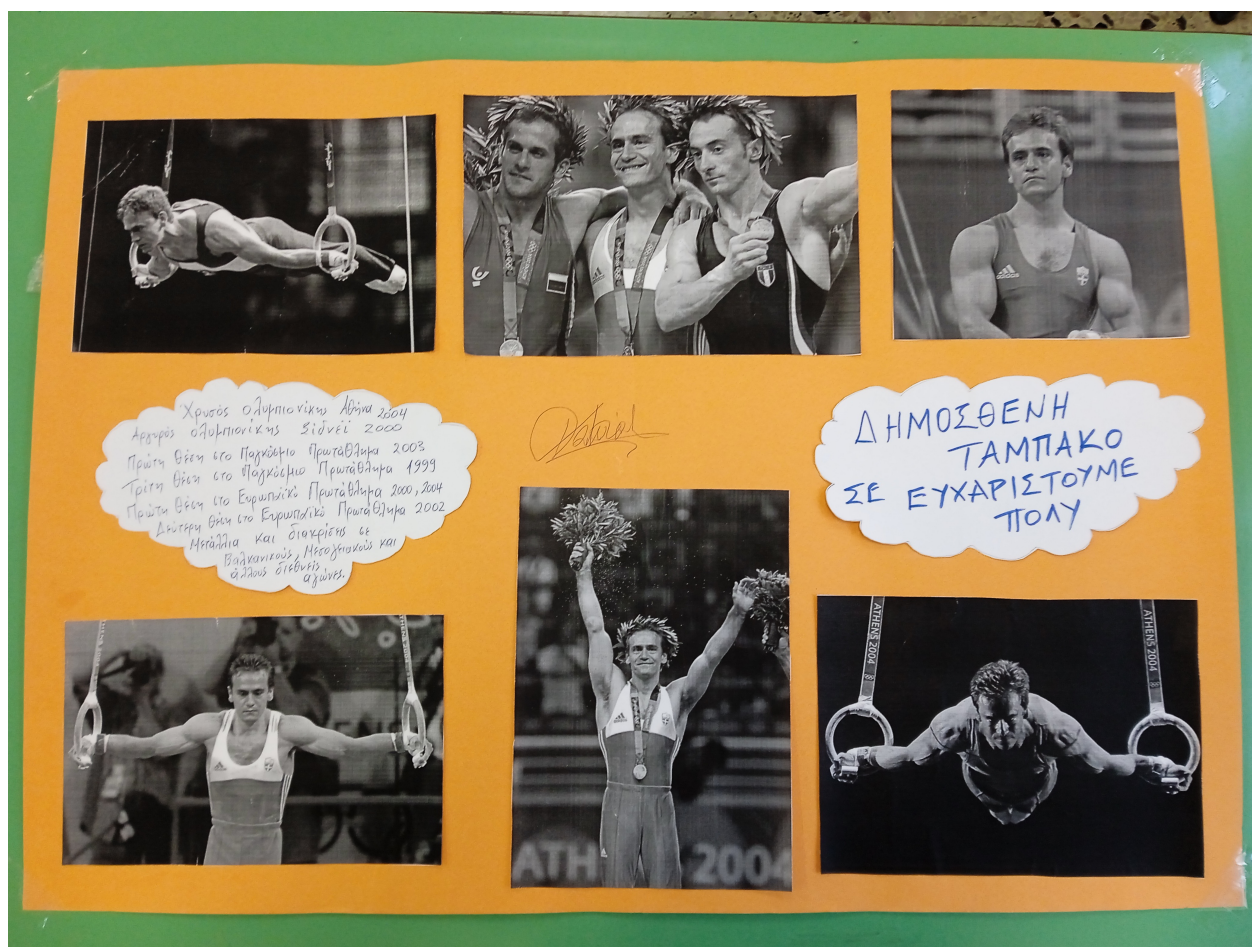 Χρυσός ολυμπιονίκης Αθήνα 2004
Αργυρός ολυμπιονίκης Σίδνεϊ 2000
Πρώτη θέση στο Παγκόσμιο Πρωτάθλημα 2003
Τρίτη θέση στο Παγκόσμιο Πρωτάθλημα 1999
Πρώτη θέση στο Ευρωπαϊκό Πρωτάθλημα 2000, 2004
Δεύτερη θέση στο Ευρωπαϊκό Πρωτάθλημα 2002
Μετάλλια και διακρίσεις σε
Βαλκανικούς, Μεσογειακούς και
άλλους διεθνείς
αγώνες.
ΔΗΜΟΣΘΕΝΗ
ΤΑΜΠΑΚΟ
ΣΕ ΕΥΧΑΡΙΣΤΟΥΜΕ
ΠΟΛΥ
adidas
ATH 2004
ATHENS 2004
ATHENS 2004